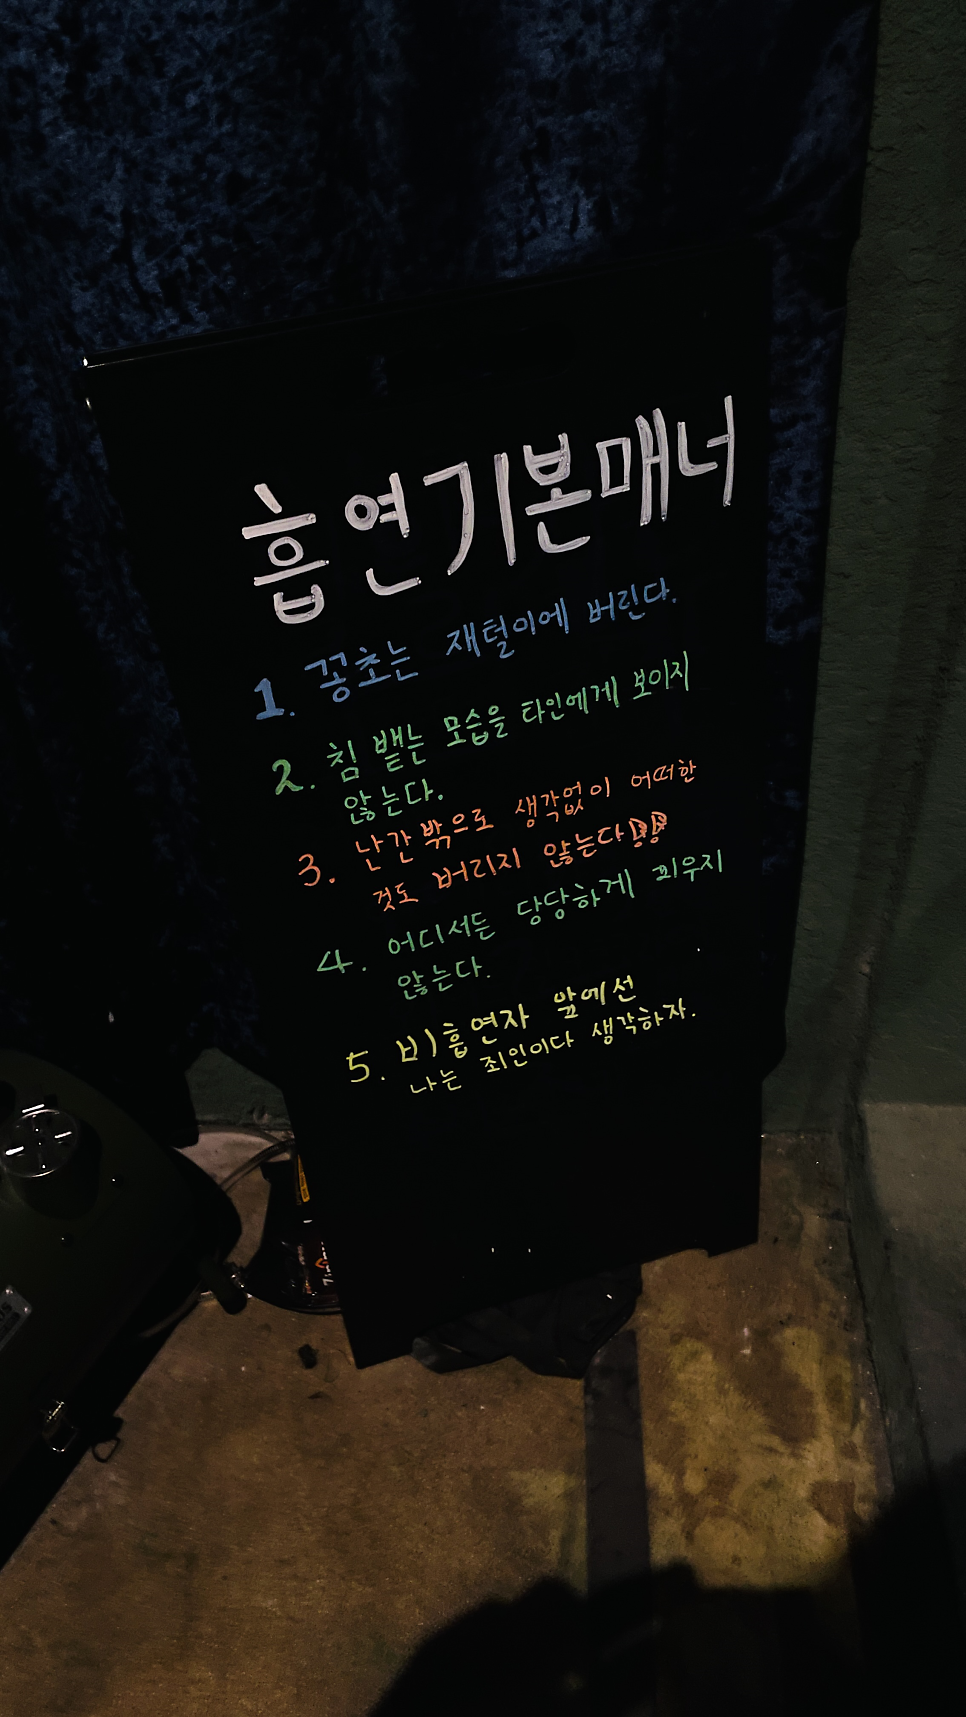 흡연기본매너
1. 꽁초는 재털이에 버린다.
2. 침 뱉는 모습을 타인에게 보이지
않는다.
3. 난간 밖으로 생각없이 어떠한
것도 버리지 않는다!!
4. 어디서든 당당하게 피우지
않는다.
5. 비)흡연자 앞에선
나는 죄인이다 생각하자.